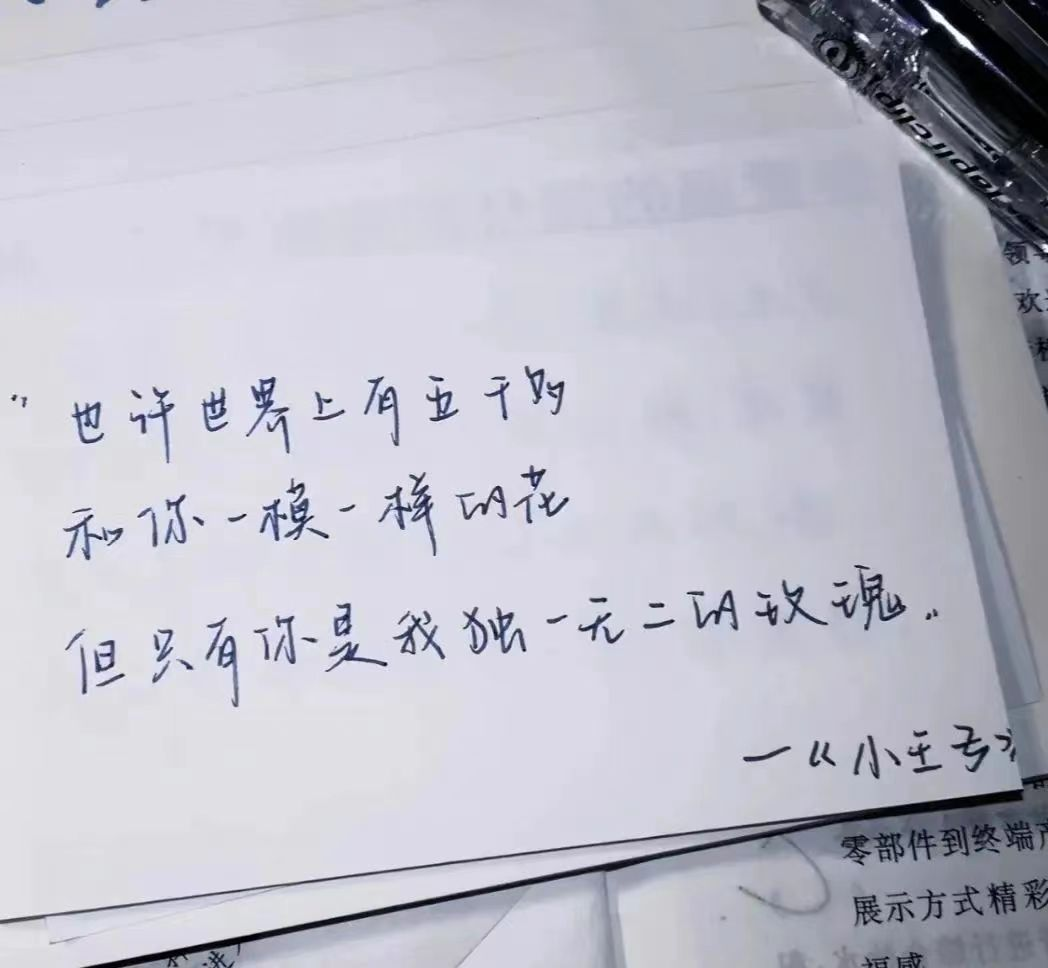 "也许世界上有五千的
和你一模一样的花
但只有你是我独一无二的玫瑰"
—《小王子》
零部件到终端产
展示方式精彩
福感
领
欢
clip